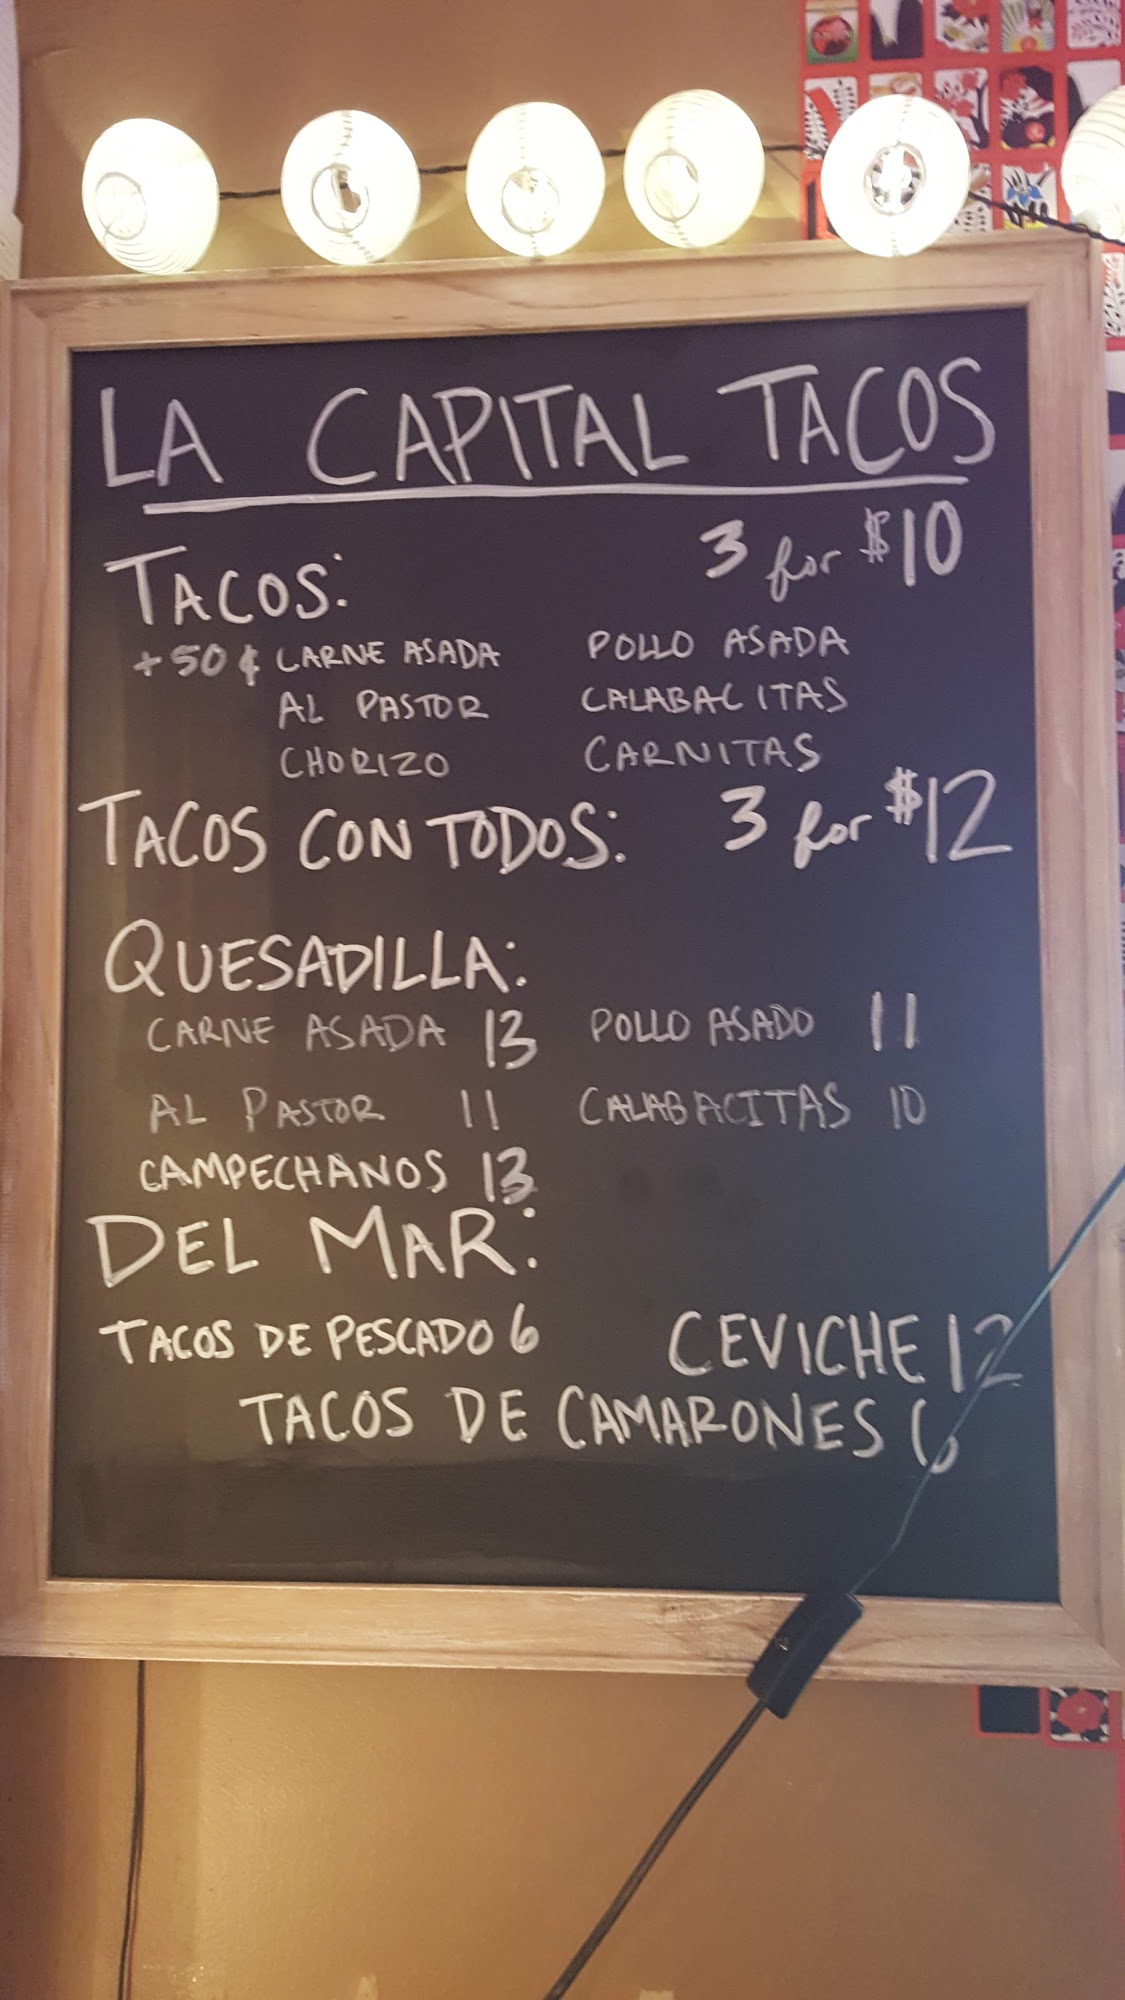 LA CAPITAL TACOS
TACOS: 3 for $10
+50¢ CARNE ASADA POLLO ASADA
AL PASTOR CALABACITAS
CHORIZO CARNITAS
TACOS CON TODOS: 3 for $12
QUESADILLA:
CARNE ASADA 13 POLLO ASADO 11
AL PASTOR 11 CALABACITAS 10
CAMPECHANOS 13
DEL MAR:
TACOS DE PESCADO 6 CEVICHE 12
TACOS DE CAMARONES 6